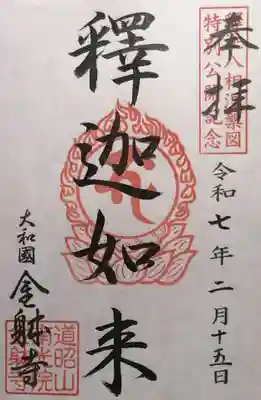 奉拝
八相涅槃図
特別公開記念
令和七年二月十五日
釋迦如来
大和國
金躰寺
道昭山